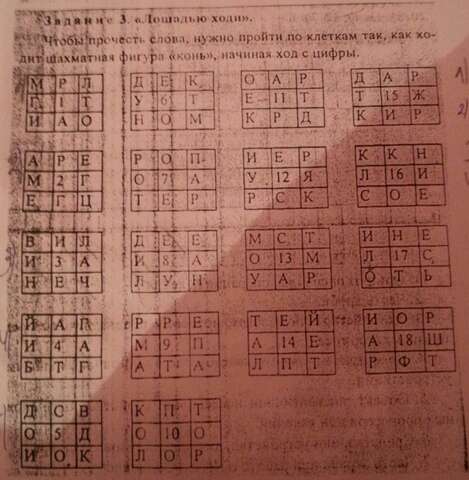 Задание 3. «Лошадью ходи».
Чтобы прочесть слова, нужно пройти по клеткам так, как хо-
дит шахматная фигура «конь», начиная ход с цифры.
М Р Л Д Е К О А Р Д А Р
Г 1 Т У 6 Т Е 11 Т Т 15 Ж
И А О Н О М К Р Д К И Р
А Р Е Р О П И Е Р К К Н
М 2 Г О 7 А У 12 Я Л 16 И
Е Г Ц Т Е Р Р С К С О Е
В И Л Д Е Е М С Т И Н Е
И 3 А И 8 А О 13 М Л 17 С
Н Е Ч Л У Н У А Р О Т Ь
Й А Г Р Р Е Т Е Й И О Р
И 4 А М 9 П А 14 Е А 18 Ш
Б Т Г А Т А Л П Т Р Ф Т
Д С В К П Т
О 5 Д О 10 О
И О К Л О Р